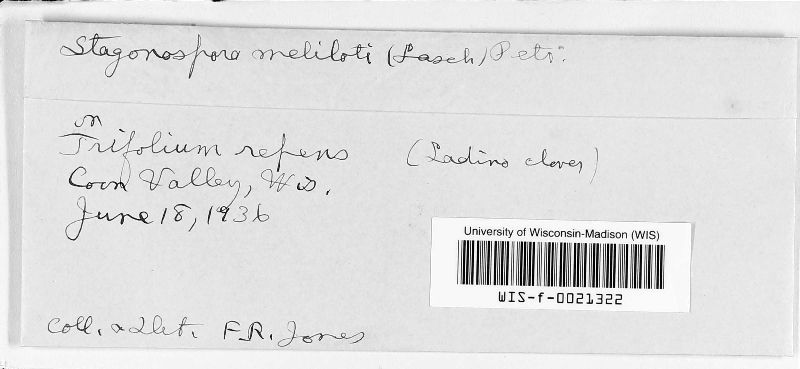 Stagonospora meliloti (Lasch) Petr.
on
Trifolium repens (Ladino clover)
Coon Valley, Wis.
June 18, 1936
University of Wisconsin-Madison (WIS)
WIS-f-0021322
Coll. & Det. F.R. Jones